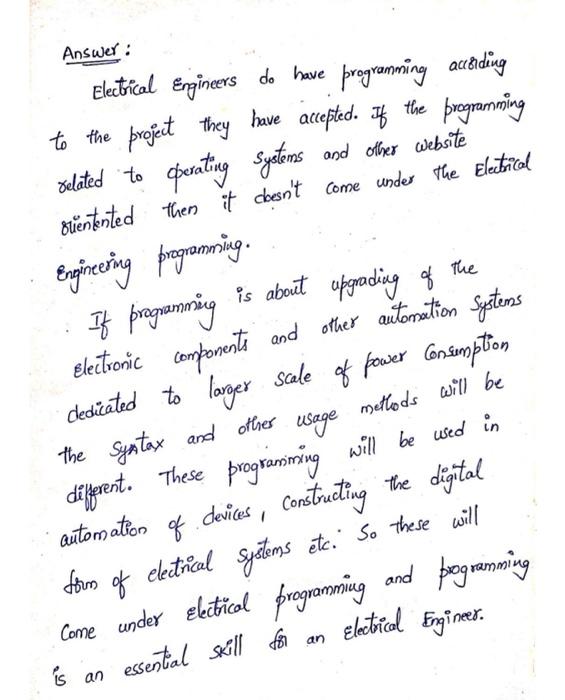 Answer :
Electrical Engineers do have programming according
to the project they have accepted. If the programming
related to operating Systems and other website
orientented then it doesn't come under the Electrical
Engineering programming.
If programming is about upgrading of the
Electronic components and other automation Systems
dedicated to larger Scale of power Consumption
the Syntax and other usage methods will be
different. These programming will be used in
automation of devices, Constructing the digital
form of electrical Systems etc. So these will
Come under electrical programming and programming
is an essential skill for an Electrical Engineer.